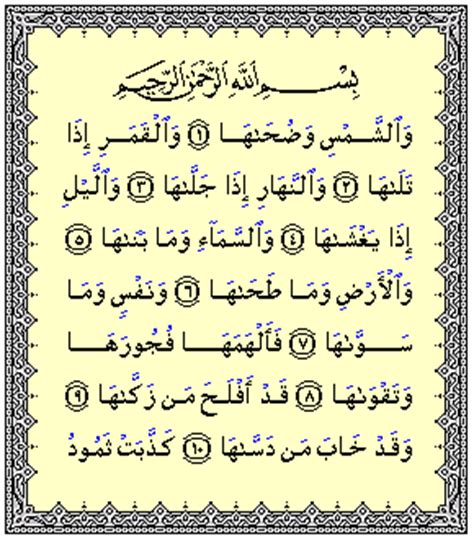 بِسْمِ ٱللَّهِ ٱلرَّحْمَٰنِ ٱلرَّحِيمِ
وَٱلشَّمْسِ وَضُحَىٰهَا ١ وَٱلْقَمَرِ إِذَا
تَلَىٰهَا ٢ وَٱلنَّهَارِ إِذَا جَلَّىٰهَا ٣ وَٱلَّيْلِ
إِذَا يَغْشَىٰهَا ٤ وَٱلسَّمَآءِ وَمَا بَنَىٰهَا ٥
وَٱلْأَرْضِ وَمَا طَحَىٰهَا ٦ وَنَفْسٍ وَمَا
سَوَّىٰهَا ٧ فَأَلْهَمَهَا فُجُورَهَا
وَتَقْوَىٰهَا ٨ قَدْ أَفْلَحَ مَن زَكَّىٰهَا ٩
وَقَدْ خَابَ مَن دَسَّىٰهَا ١٠ كَذَّبَتْ ثَمُودُ